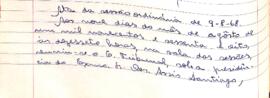 Ata da sessão ordinária de 9-8-68.
Aos nove dias do mês de agôsto de
um mil novecentos e sessenta e oito,
às dezesseis horas, na sala das sessões,
reuniu-se o E. Tribunal, sob a presidên-
cia do Exmo. Sr. Des. Assis Santiago,